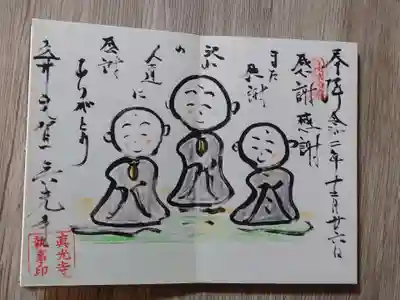 奉拝 令和二年十二月廿六日
感謝感謝
また
感謝
沢山
の
人達に
感謝
ありがとう
光寺
眞光寺
執事印